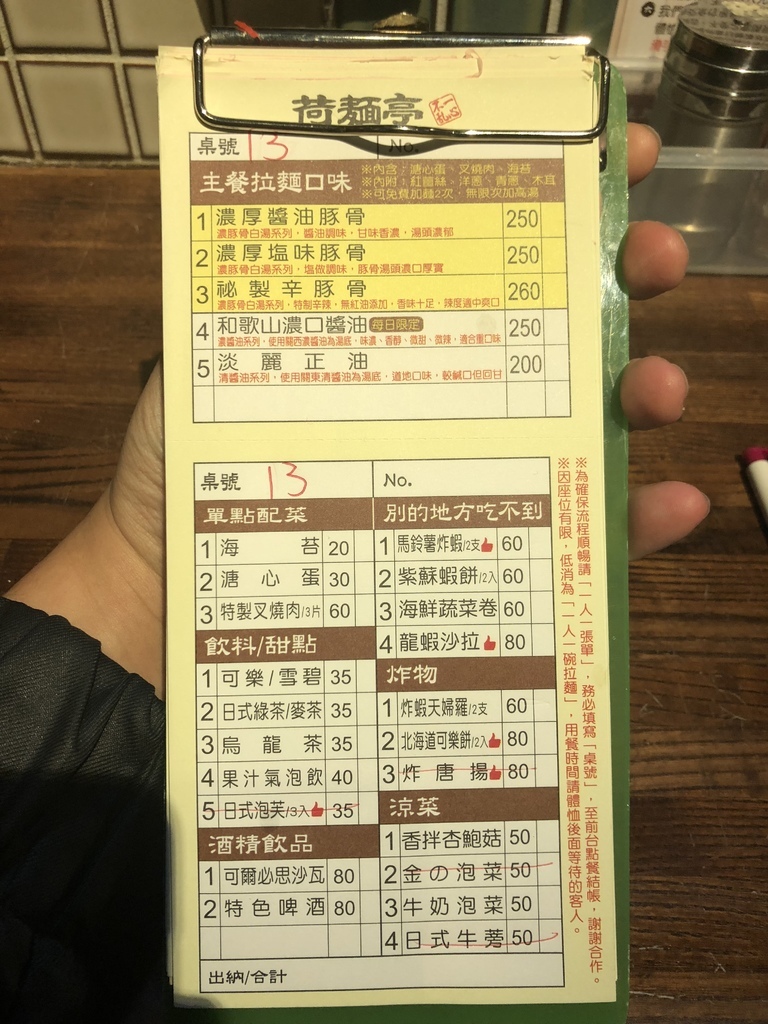 荷麵亭
桌號 13 No.
主餐拉麵口味
※內含：溏心蛋、叉燒肉、海苔
※內附：紅薑絲、洋蔥、青蔥、木耳
※可免費加麵2次，無限次加高湯
1 濃厚醬油豚骨 250
濃豚骨白湯系列，醬油調味，甘味香濃，湯頭濃郁
2 濃厚塩味豚骨 250
濃豚骨白湯系列，塩做調味，豚骨湯頭濃口厚實
3 祕製辛豚骨 260
濃豚骨白湯系列，特制辛辣，無紅油添加，香味十足，辣度適中爽口
4 和歌山濃口醬油 每日限定 250
濃醬油系列，使用關西濃醬油為湯底，味濃、香醇、微甜、微辣，適合重口味
5 淡麗正油 200
清醬油系列，使用關東清醬油為湯底，道地口味，較鹹口但回甘
桌號 13 No.
單點配菜
1 海苔 20
2 溏心蛋 30
3 特製叉燒肉/3片 60
飲料/甜點
1 可樂/雪碧 35
2 日式綠茶/麥茶 35
3 烏龍茶 35
4 果汁氣泡飲 40
5 日式泡芙/3入 35
酒精飲品
1 可爾必思沙瓦 80
2 特色啤酒 80
別的地方吃不到
1 馬鈴薯炸蝦/2支 60
2 紫蘇蝦餅/2入 60
3 海鮮蔬菜卷 60
4 龍蝦沙拉 80
炸物
1 炸蝦天婦羅/2支 60
2 北海道可樂餅/2入 80
3 炸唐揚 80
涼菜
1 香拌杏鮑菇 50
2 金の泡菜 50
3 牛奶泡菜 50
4 日式牛蒡 50
出納/合計
※為確保流程順暢請「一人一張單」，務必填寫「桌號」，至前台點餐結帳，謝謝合作。
※因座位有限，低消為「一人一碗拉麵」，用餐時間請體恤後面等待的客人。